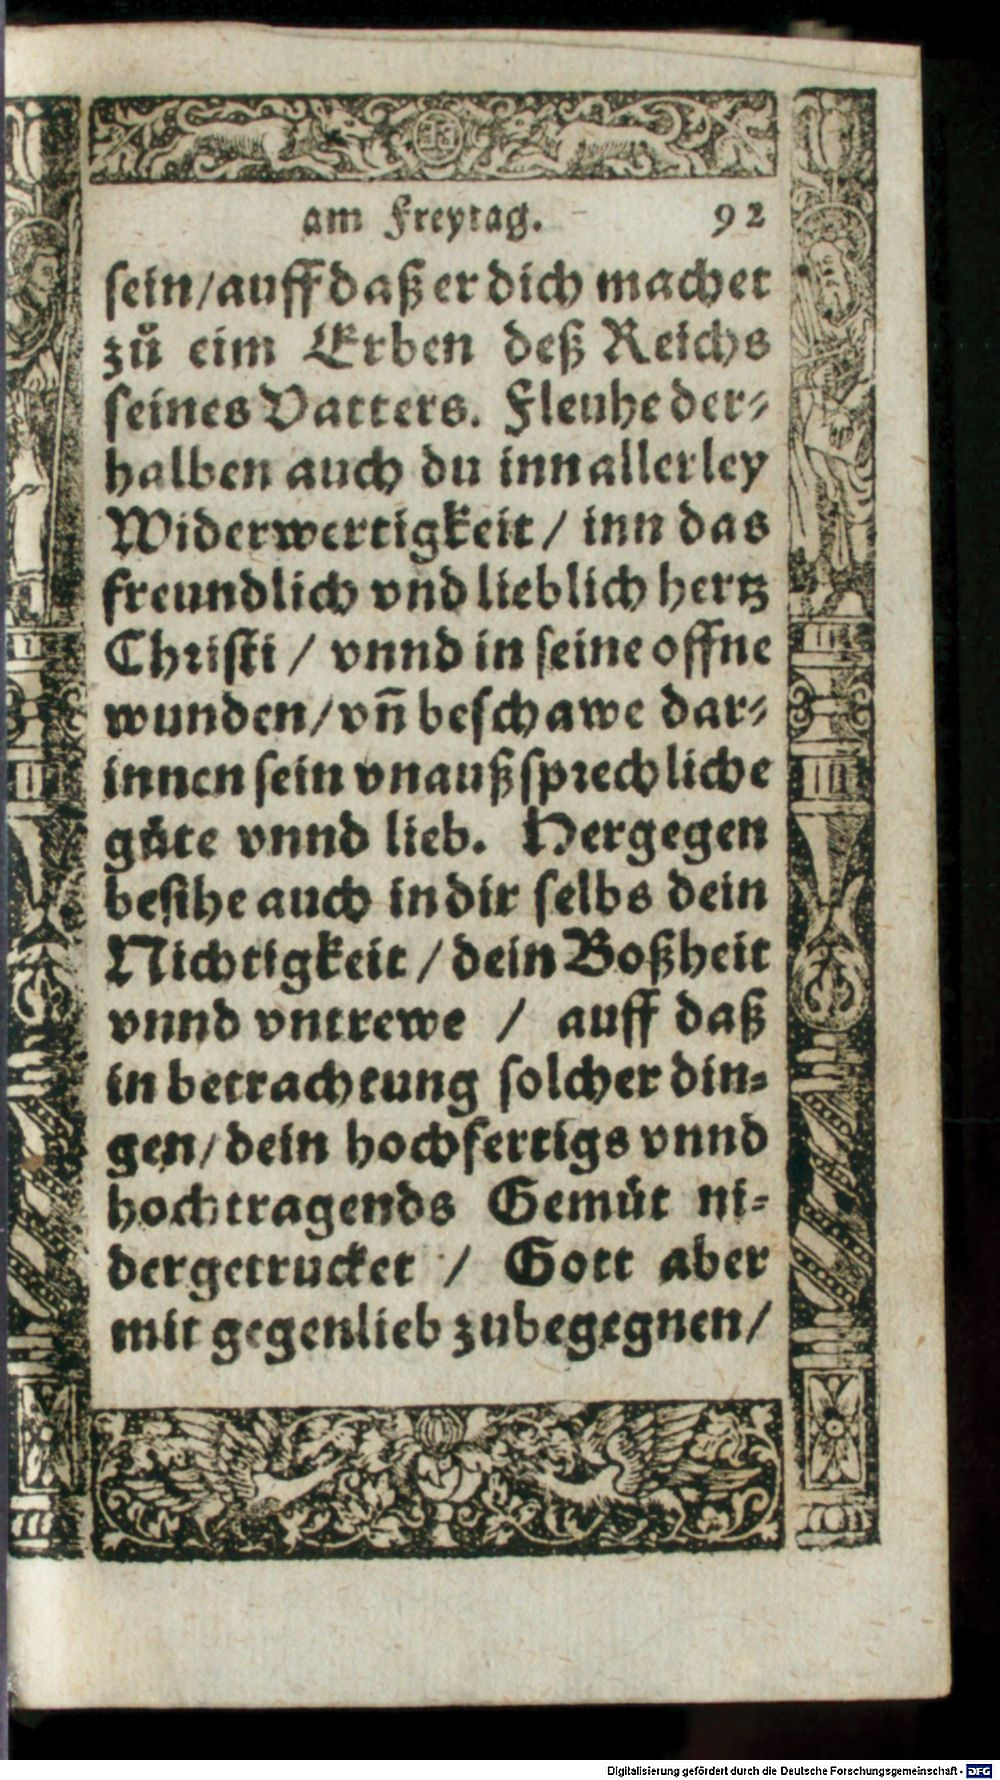 am Freytag. 92
sein/auff daß er dich machet
zů eim Erben deß Reichs
seines Vatters. Fleuhe der-
halben auch du inn allerley
Widerwertigkeit / inn das
freundlich vnd lieblich hertz
Christi / vnnd in seine offne
wunden/vñ beschawe dar-
innen sein vnaußsprechliche
gůte vnnd lieb. Hergegen
besihe auch in dir selbs dein
Nichtigkeit / dein Boßheit
vnnd vntrewe / auff daß
in betrachtung solcher din-
gen/dein hochfertigs vnnd
hochtragends Gemüt ni-
dergetrucket / Gott aber
mit gegenlieb zubegegnen/
Digitalisierung gefördert durch die Deutsche Forschungsgemeinschaft - DFG